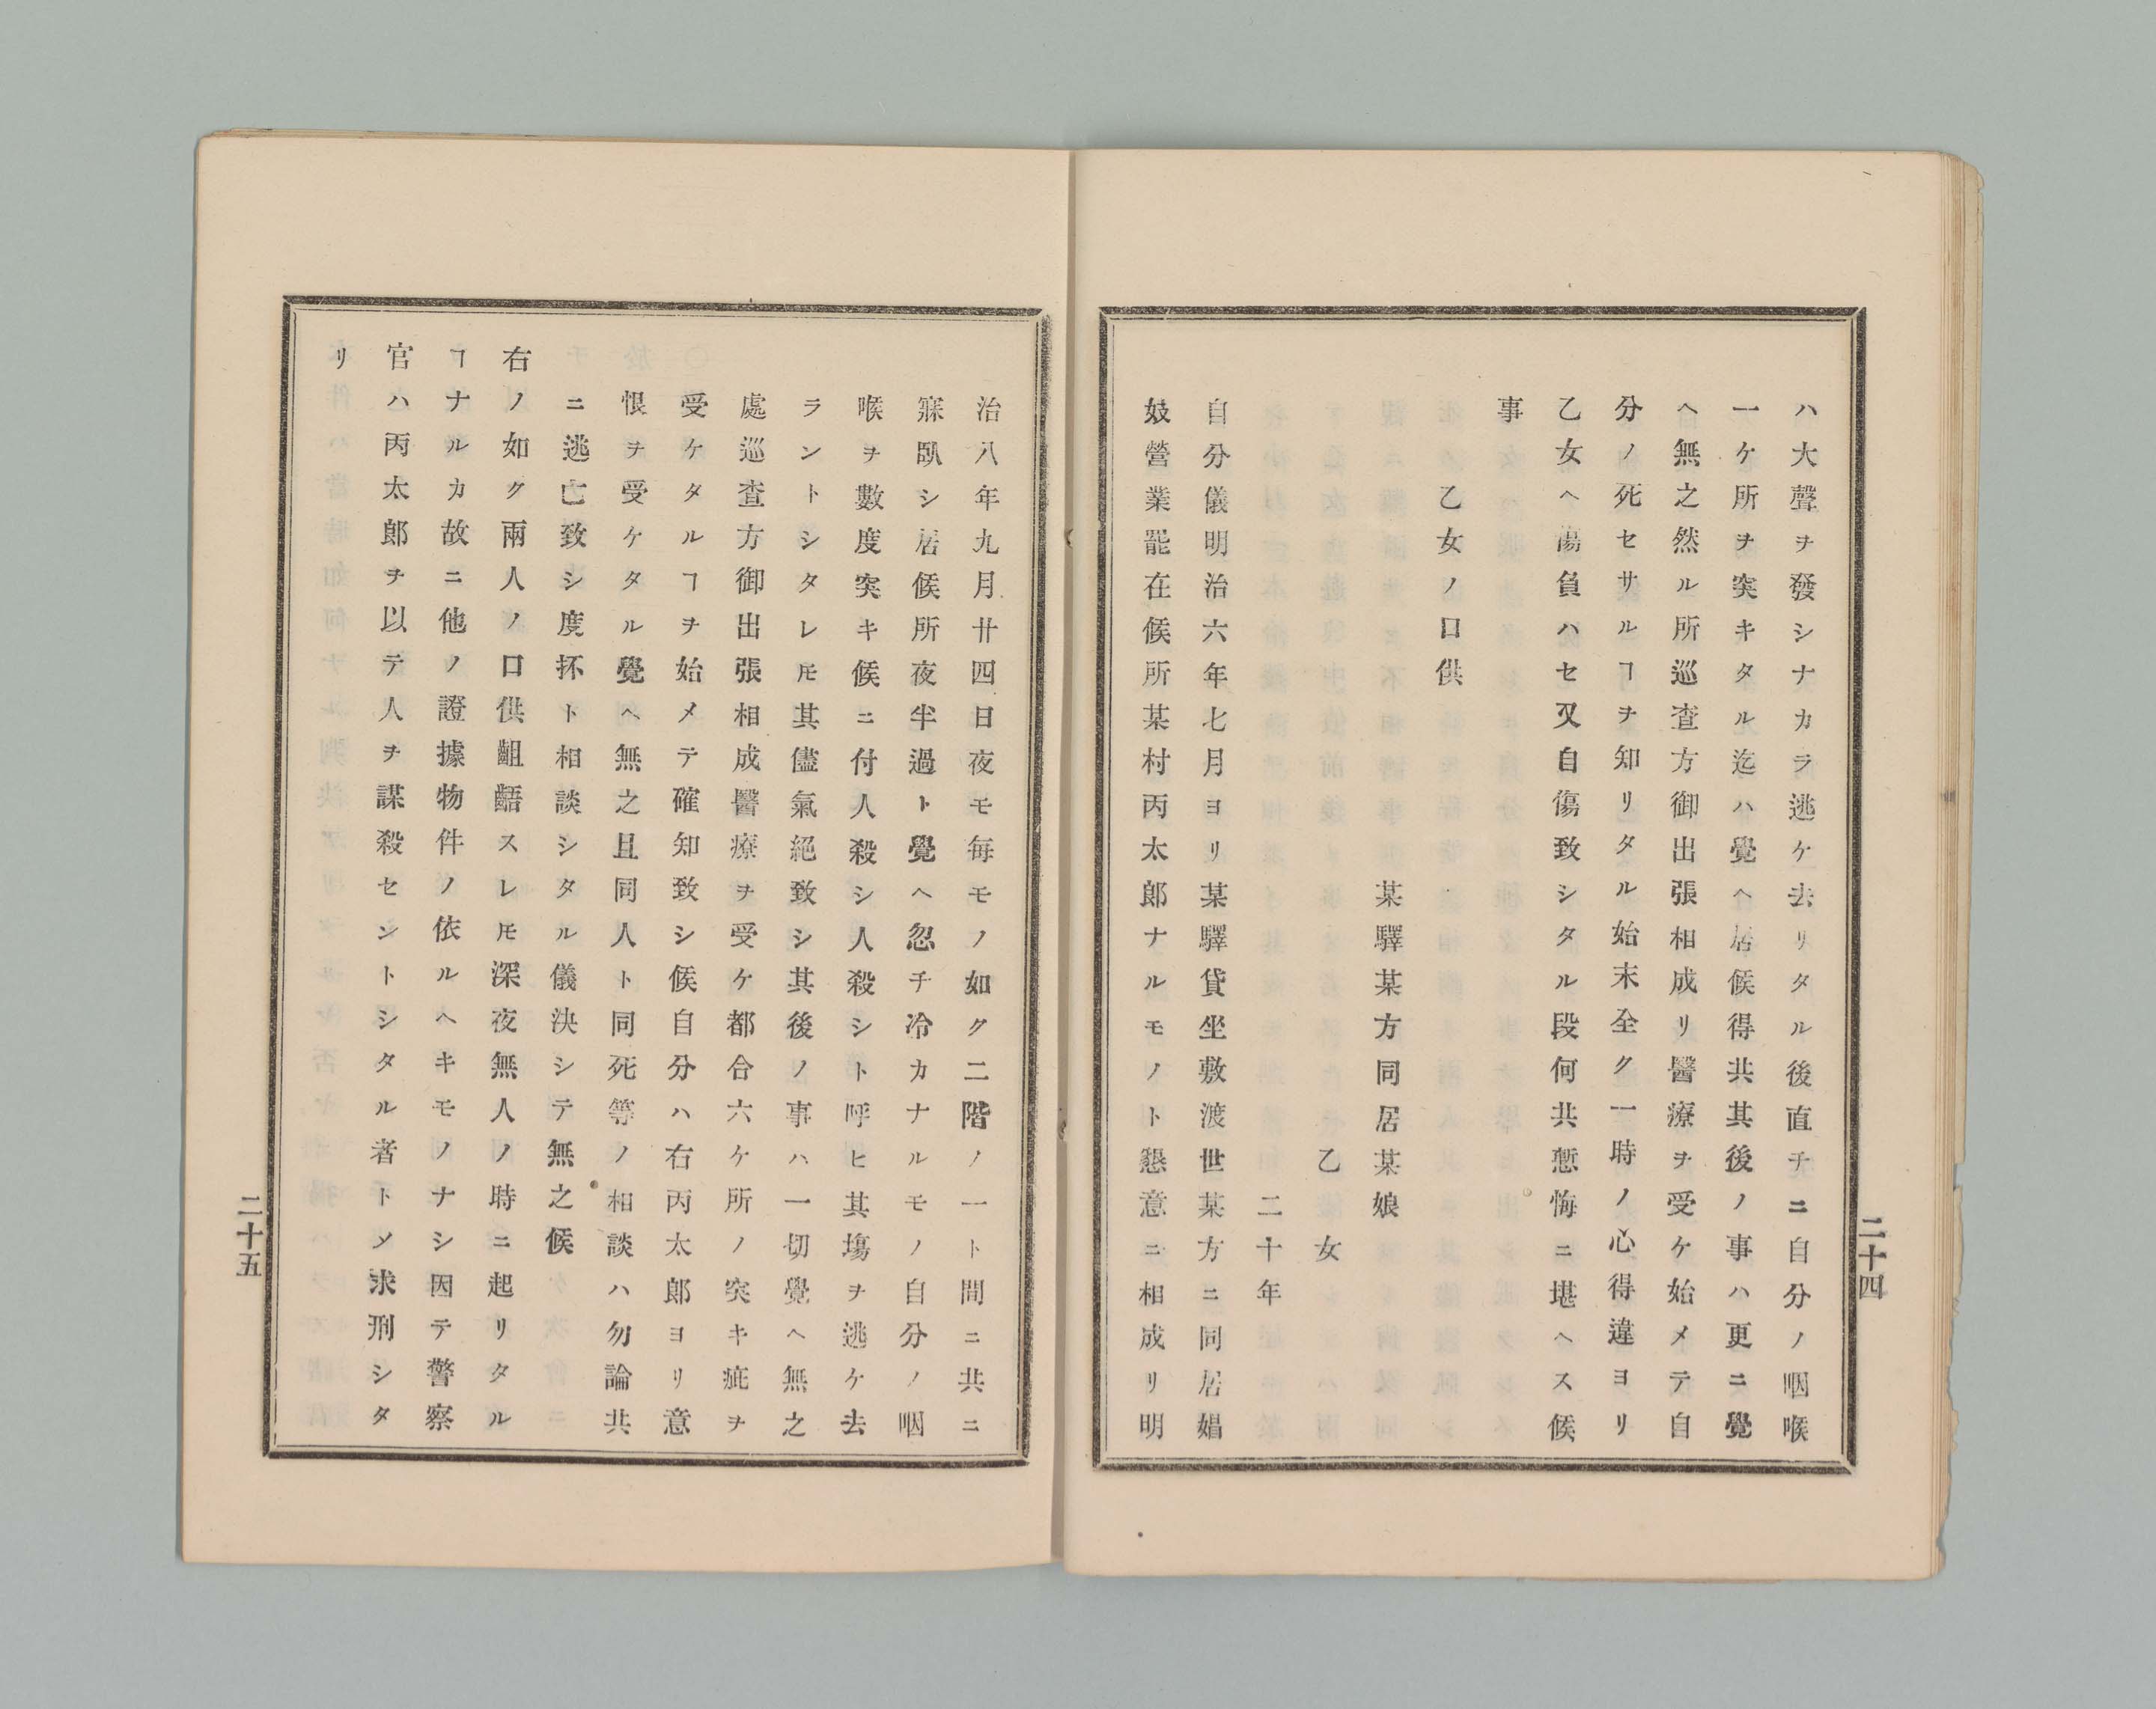 ハ大聲ヲ發シナカラ逃ケ去リタル後直チニ自分ノ咽喉
一ケ所ヲ突キタル迄ハ覺ヘ居候得共其後ノ事ハ更ニ覺
ヘ無之然ル所巡査方御出張相成リ醫療ヲ受ケ始メテ自
分ノ死セサルヿヲ知リタル始末全ク一時ノ心得違ヨリ
乙女ヘ傷負ハセ又自傷致シタル段何共慙悔ニ堪ヘス候
事
乙女ノ口供
某驛某方同居某娘
乙女
二十年
自分儀明治六年七月ヨリ某驛貸坐敷渡世某方ニ同居娼
妓營業罷在候所某村丙太郎ナルモノト懇意ニ相成リ明
二十四
治八年九月廿四日夜モ毎モノ如ク二階ノ一ト間ニ共ニ
寐臥シ居候所夜半過ト覺ヘ忽チ冷カナルモノ自分ノ咽
喉ヲ數度突キ候ニ付人殺シ人殺シト呼ヒ其塲ヲ逃ケ去
ラントシタレ𪜈其儘氣絕致シ其後ノ事ハ一切覺ヘ無之
處巡査方御出張相成醫療ヲ受ケ都合六ケ所ノ突キ疵ヲ
受ケタルヿヲ始メテ確知致シ候自分ハ右丙太郎ヨリ意
恨ヲ受ケタル覺ヘ無之且同人ト同死等ノ相談ハ勿論共
ニ逃亡致シ度抔ト相談シタル儀決シテ無之候
右ノ如ク兩人ノ口供齟齬スレ𪜈深夜無人ノ時ニ起リタル
ヿナルカ故ニ他ノ證據物件ノ依ルヘキモノナシ因テ警察
官ハ丙太郎ヲ以テ人ヲ謀殺セントシタル者トシ求刑シタ
リ
二十五